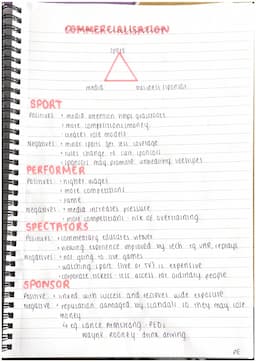 COMMERCIALISATION
sport
media
business/sponsor
SPORT
Positives: • media attention helps grassroots
• more competitions/money
• creates role models
Negatives: • minor sports get less coverage
• rules change to can sponsors
• sponsors may promote unhealthy lifestyles
PERFORMER
Positives: • higher wages
• more competitions
• fame
negatives: • media increases pressure
• more competitions: risk of overtraining
SPECTATORS
Positives: • commentary educates viewer
• viewing experience improved by tech eg VAR, replays
Negatives: • not going to live games
• watching sport (live or TV) is expensive
• corporate tickets: less access for ordinary people.
SPONSOR
Positive: • linked with success and receives wide exposure
negative: • reputation damaged by scandals so they may lose
money
↳ eg. Lance Armstrong: PEDs
Wayne Rooney: drink driving.
PE